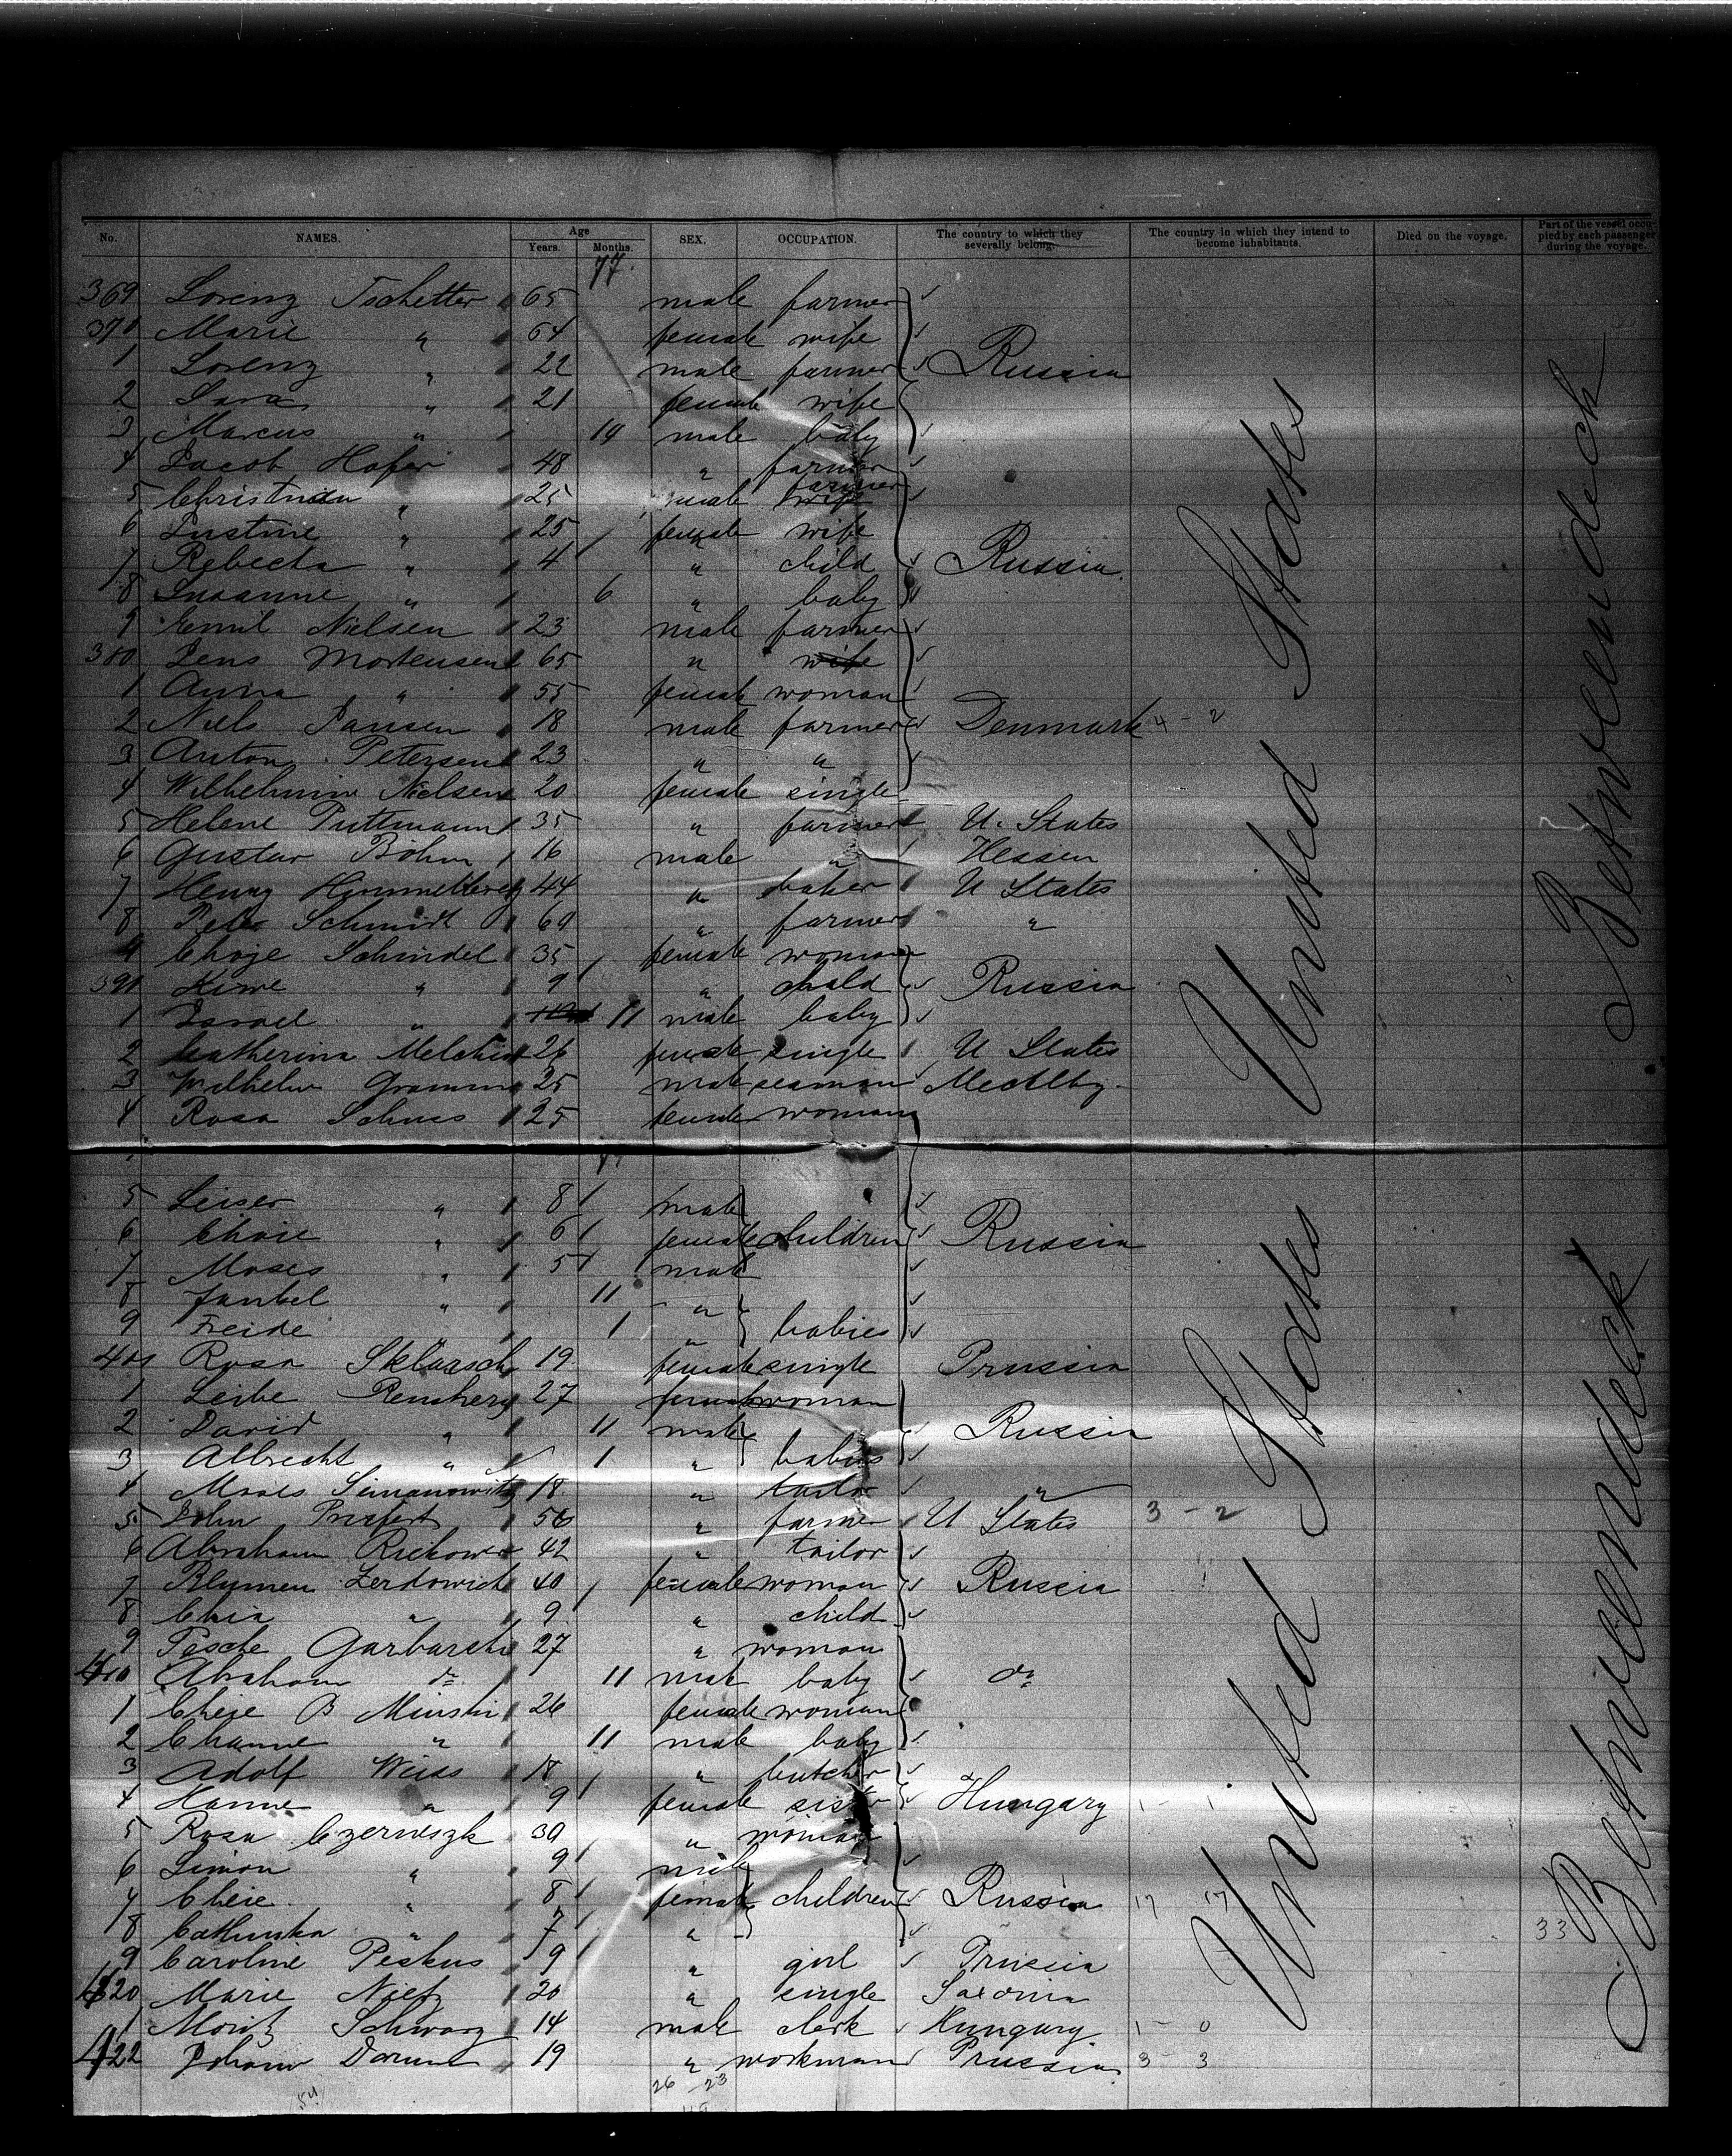 No. NAMES. Age Years. Months. SEX. OCCUPATION. The country to which they severally belong. The country in which they intend to become inhabitants. Died on the voyage. Part of the vessel occupied by each passenger during the voyage.
77.
369 Lorenz Tschetter 65 male farmer
370 Marie " 64 female wife
1 Lorenz " 22 male farmer Russia
2 Sara " 21 female wife
3 Marcus " 14 male baby
4 Jacob Hofer 48 " farmer
5 Christian " 25 male farmer
6 Justine " 25 female wife
7 Rebecka " 4 " child Russia.
8 Susanne " 6 " baby
9 Emil Nielsen 23 male farmer
380 Jens Mortensen 65 " wife
1 Anna " 55 female woman
2 Niels Jansen 18 male farmer Denmark 4 - 2
3 Anton Petersen 23 " "
4 Wilhelmine Nielsen 20 female single
5 Helene Puttmann 35 " farmer U. States
6 Gustav Böhm 16 male " Hessen
7 Henry 44 " baker U States
8 Peter Schmidt 60 " farmer "
9 Choje Schindel 35 female woman
390 " 9 " child Russia
1 Israel " 11 male baby
2 Catherina 26 female single U States
3 Wilhelm Gramm 25 male seaman Mecklbg.
4 Rosa Schuss 25 female woman
United States
Between deck
5 Leiser " 8 male
6 Chaie " 6 female children Russia
7 Moses " 5 male
8 Jankel " 11 "
9 Freide " 1 " babies
400 Rosa Sklarsch 19 female single Prussia
1 Leibe 27 female woman
2 David " 11 male Russia
3 Albrecht " 1 " babies
4 Moses Simanowitz 18 " tailor "
5 John 56 " farmer U States 3 - 2
6 Abraham 42 " tailor
7 Blumen Zerdowich 40 female woman Russia
8 Chia " 9 " child
9 Pesche Garbarski 27 " woman
410 Abraham do 11 male baby do
1 Cheie B Minski 26 female woman
2 Channe " 11 male baby
3 Adolf Weiss 18 " butcher
4 Hanne " 9 female sister Hungary 1 - 1
5 Rosa 30 " woman
6 Simon " 9 male
7 Cheie " 8 female children Russia 17 17
8 Cathinka " 7 "
9 Caroline Peskus 9 " girl Prussia
420 Marie 20 " single Saxonia
1 Moritz Schwarz 14 male clerk Hungary 1 - 0
422 Johann 19 " workman Prussia 3 - 3
United States
Between deck
33
26 23
54